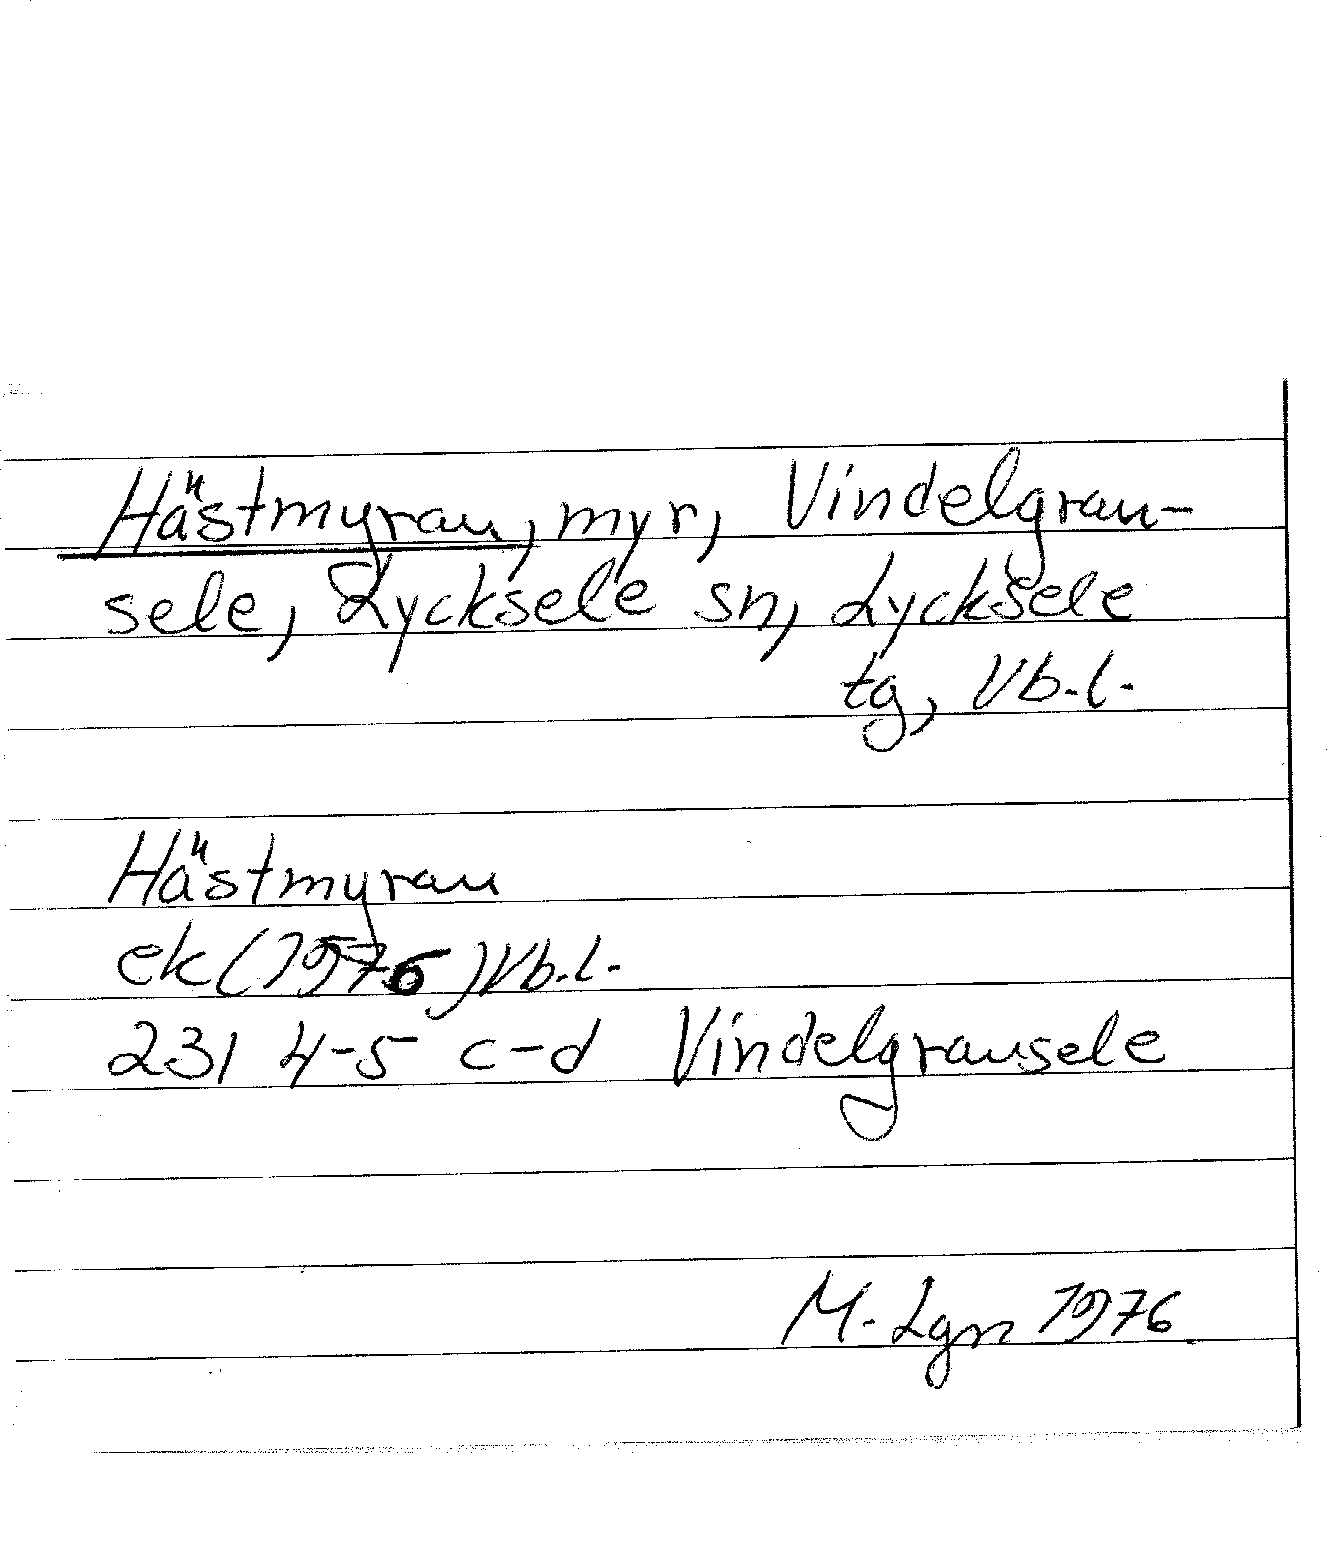 Hästmyran, myr, Vindelgran-
sele, Lycksele sn, Lycksele
tg, Vb.l.
Hästmyran
ek (1976) Vb.l.
23I 4-5 c-d Vindelgransele
M. Lgn 1976